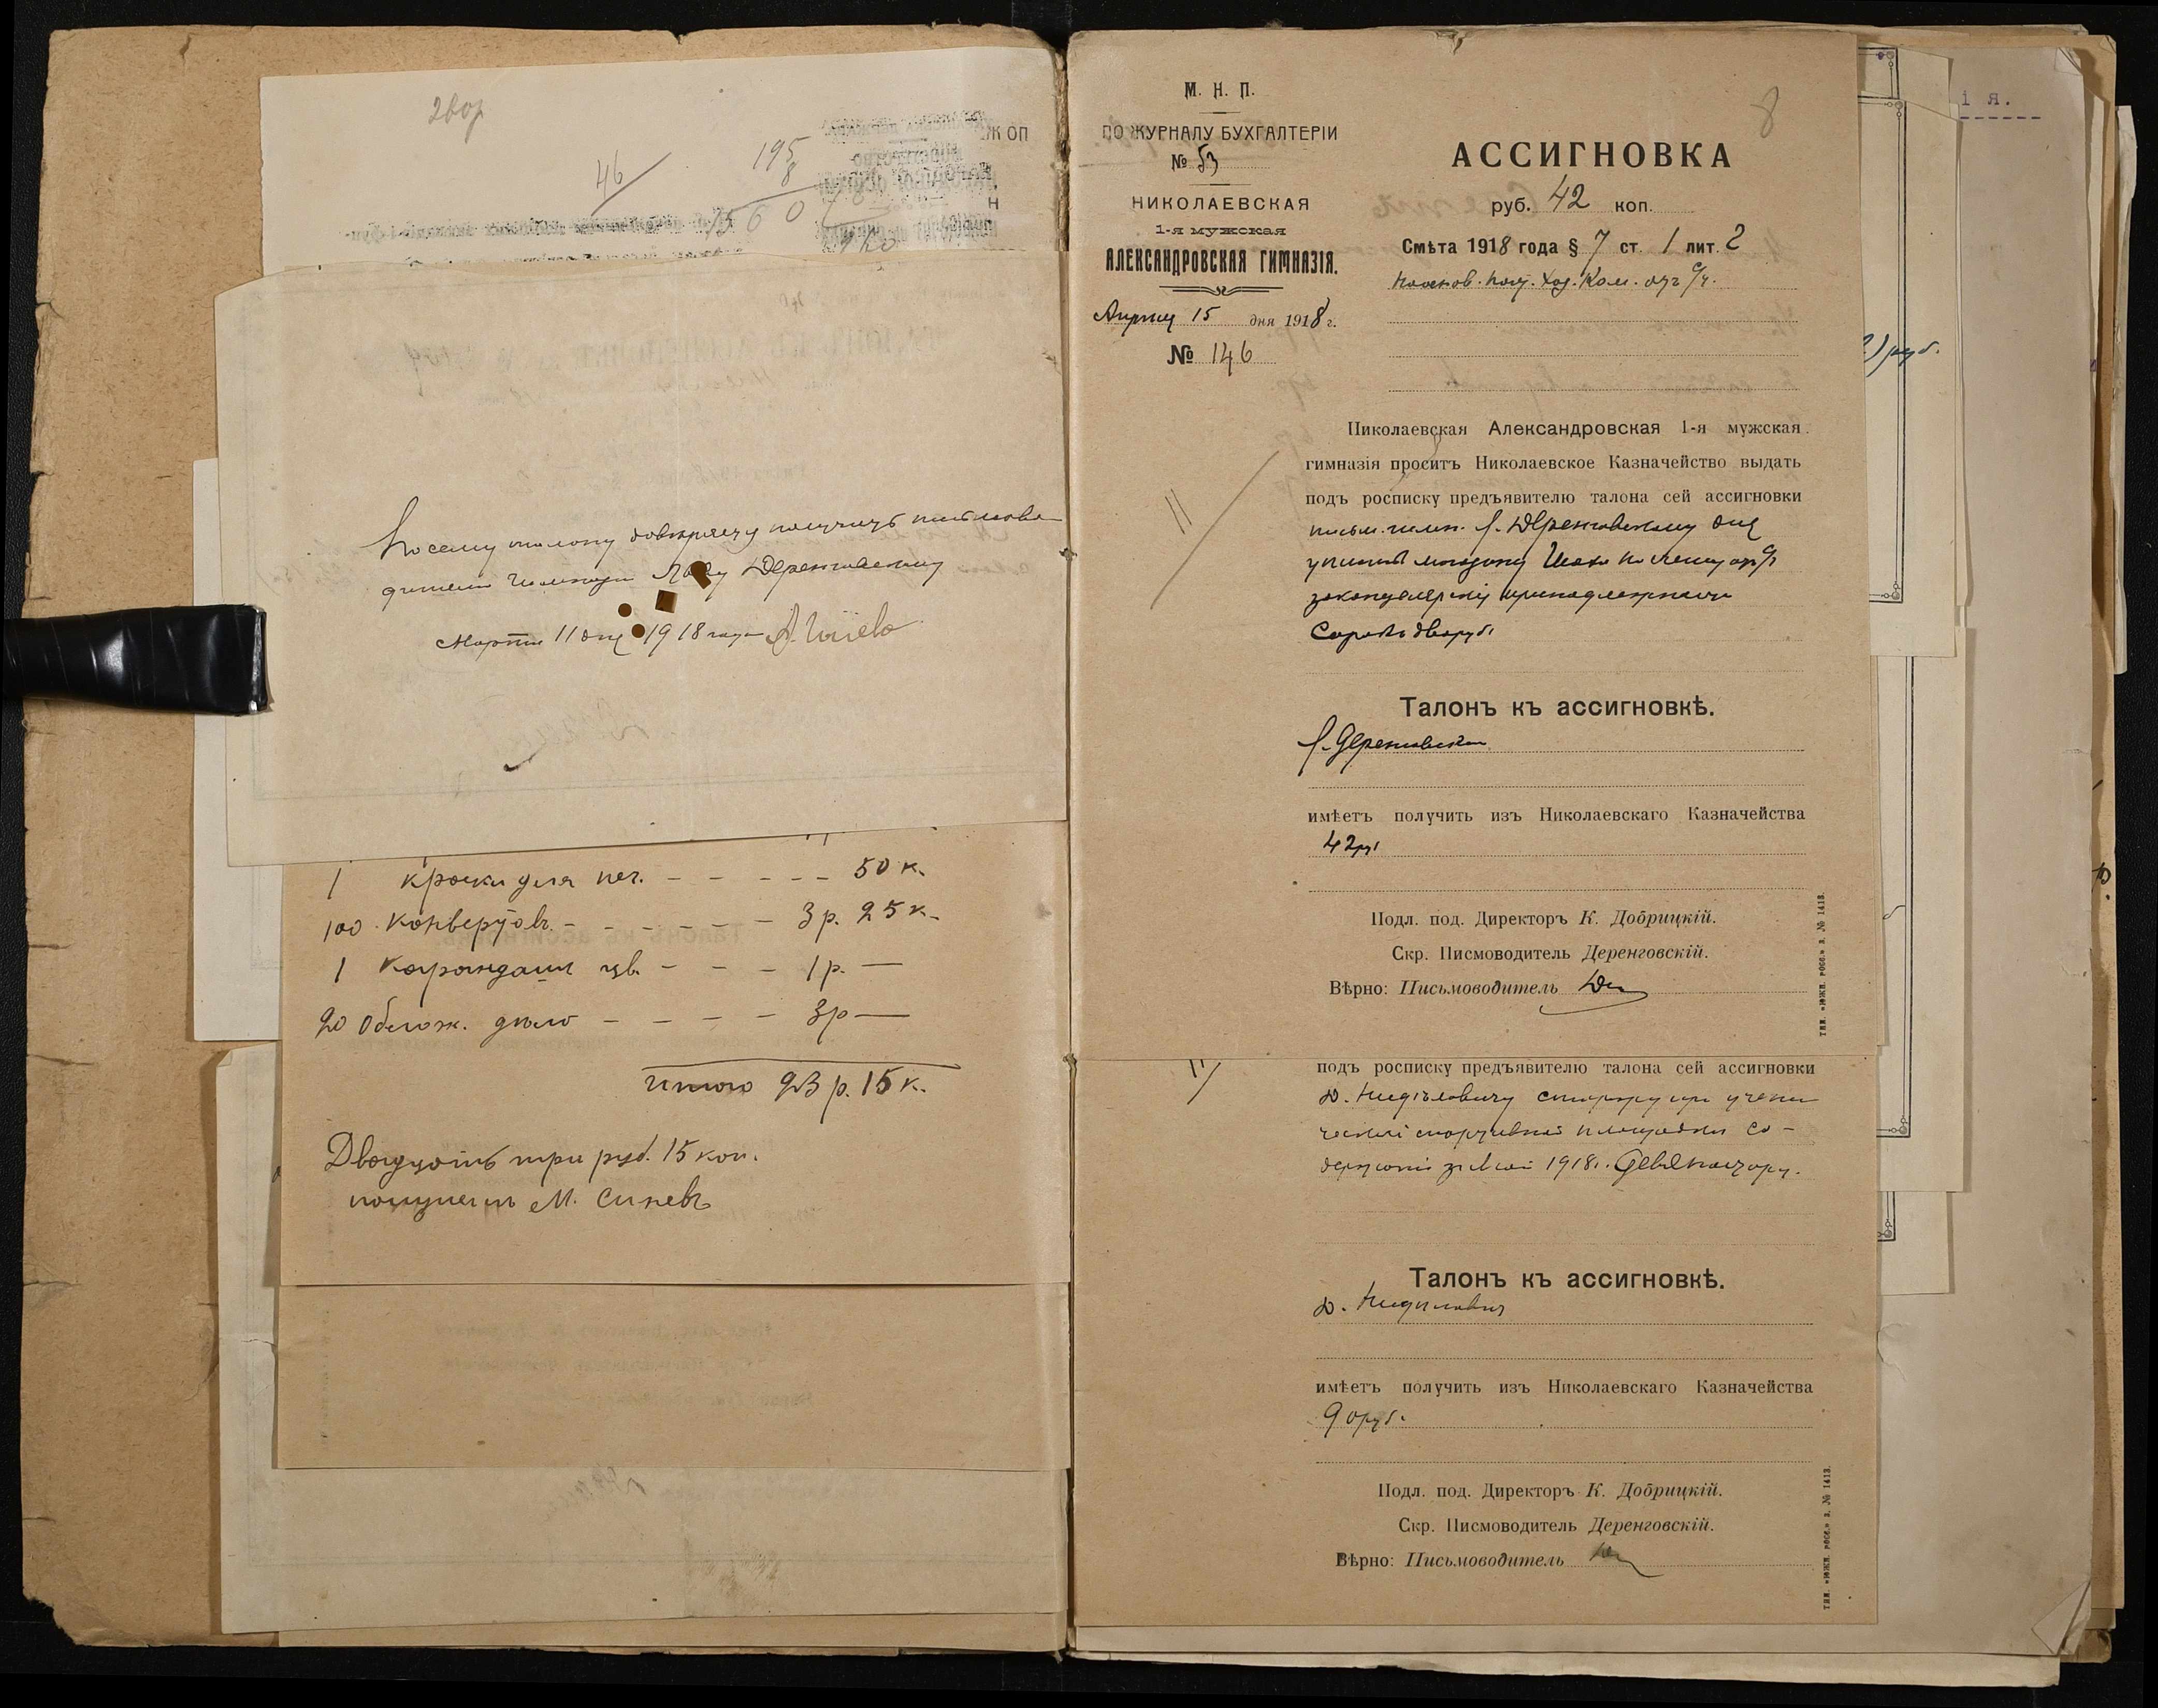 46
195
8
По сему талону довѣряю получить письмово-
дителю Гимназіи Деренговскому
Марта 11 дня 1918 года
1 краски для печ. - - - - - 50 к.
100 конвертовъ - - - - - - 3 р. 25 к.
1 карандашъ цв. - - - 1 р. —
20 Облож. дѣло - - - - 3 р —
Итого 23 р. 15 к.
Двадцать три руб. 15 коп.
получилъ М. Синевъ
М. Н. П.
ПО ЖУРНАЛУ БУХГАЛТЕРІИ
№ 53
НИКОЛАЕВСКАЯ
1-я мужская
АЛЕКСАНДРОВСКАЯ ГИМНАЗІЯ.
15 дня 1918 г.
№ 146
8
АССИГНОВКА
руб. 42 коп.
Смѣта 1918 года § 7 ст. 1 лит. 2
Николаевская Александровская 1-я мужская
гимназія проситъ Николаевское Казначейство выдать
подъ росписку предъявителю талона сей ассигновки
письм. гимн. Деренговскому для
уплаты магазину
канцелярскія принадлежности
Сорокъ два руб.
Талонъ къ ассигновкѣ.
Деренговскій
имѣетъ получить изъ Николаевскаго Казначейства
42 р.
Подл. под. Директоръ К. Добрицкій.
Скр. Писмоводитель Деренговскій.
Вѣрно: Письмоводитель
тип. «южн. росс.» з. № 1413.
подъ росписку предъявителю талона сей ассигновки
сторожу при учени-
ческой спортивной площадки со-
держаніе за Май 1918 г. Девяносто р.
Талонъ къ ассигновкѣ.
имѣетъ получить изъ Николаевскаго Казначейства
90 руб.
Подл. под. Директоръ К. Добрицкій.
Скр. Писмоводитель Деренговскій.
Вѣрно: Письмоводитель
тип. «южн. росс.» з. № 1413.